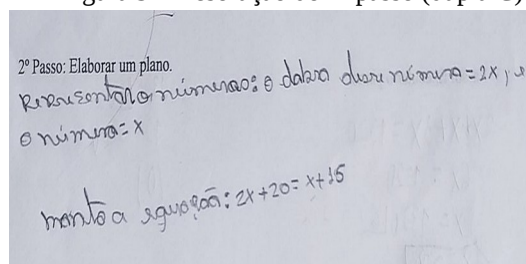 2º Passo: Elaborar um plano.
Representar o número: o dobro desse número = 2x,
o número = x
monto a equação: 2x+20 = x+15